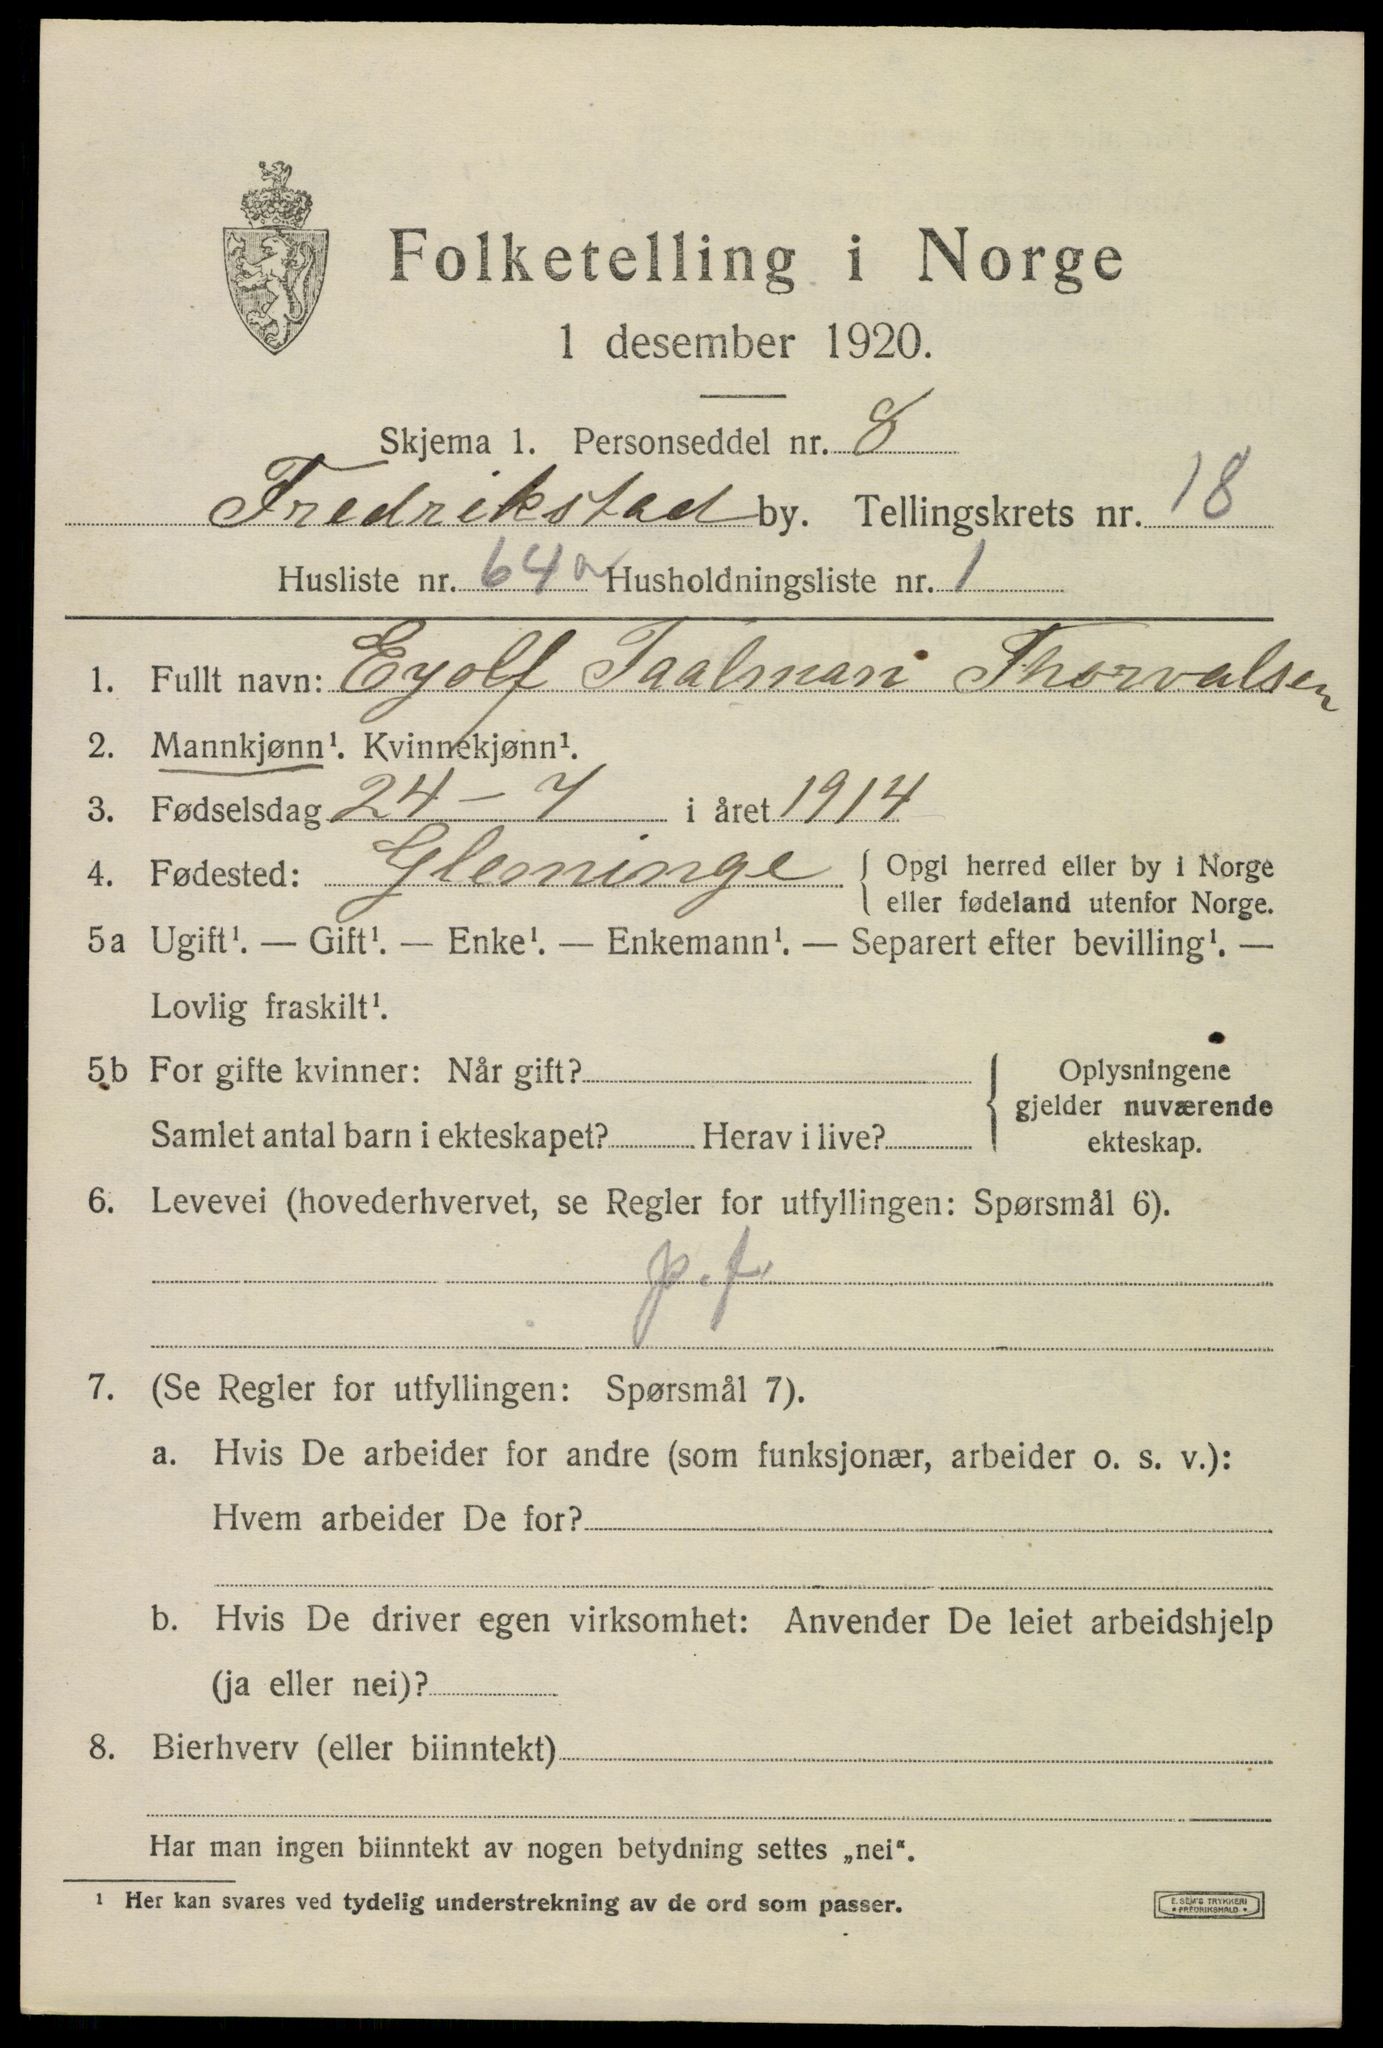 Folketelling i Norge
1 desember 1920.
Skjema 1. Personseddel nr. 8
Fredrikstad by. Tellingskrets nr. 18
Husliste nr. 64a Husholdningsliste nr. 1
1. Fullt navn: Eyolf Taalman Thorvalsen
2. Mannkjønn¹. Kvinnekjønn¹.
3. Fødselsdag 24 – 7 i året 1914
4. Fødested: Glemminge { Opgi herred eller by i Norge
eller fødeland utenfor Norge.
5a Ugift¹. — Gift¹. — Enke¹. — Enkemann¹. — Separert efter bevilling¹. —
Lovlig fraskilt¹.
5b For gifte kvinner: Når gift? { Oplysningene
gjelder nuværende
Samlet antal barn i ekteskapet? Herav i live? ekteskap.
6. Levevei (hovederhvervet, se Regler for utfyllingen: Spørsmål 6).
p. f.
7. (Se Regler for utfyllingen: Spørsmål 7).
a. Hvis De arbeider for andre (som funksjonær, arbeider o. s. v.):
Hvem arbeider De for?
b. Hvis De driver egen virksomhet: Anvender De leiet arbeidshjelp
(ja eller nei)?
8. Bierhverv (eller biinntekt)
Har man ingen biinntekt av nogen betydning settes „nei“.
¹ Her kan svares ved tydelig understrekning av de ord som passer.
E. SEM'S TRYKKERI
* FREDRIKSHALD *